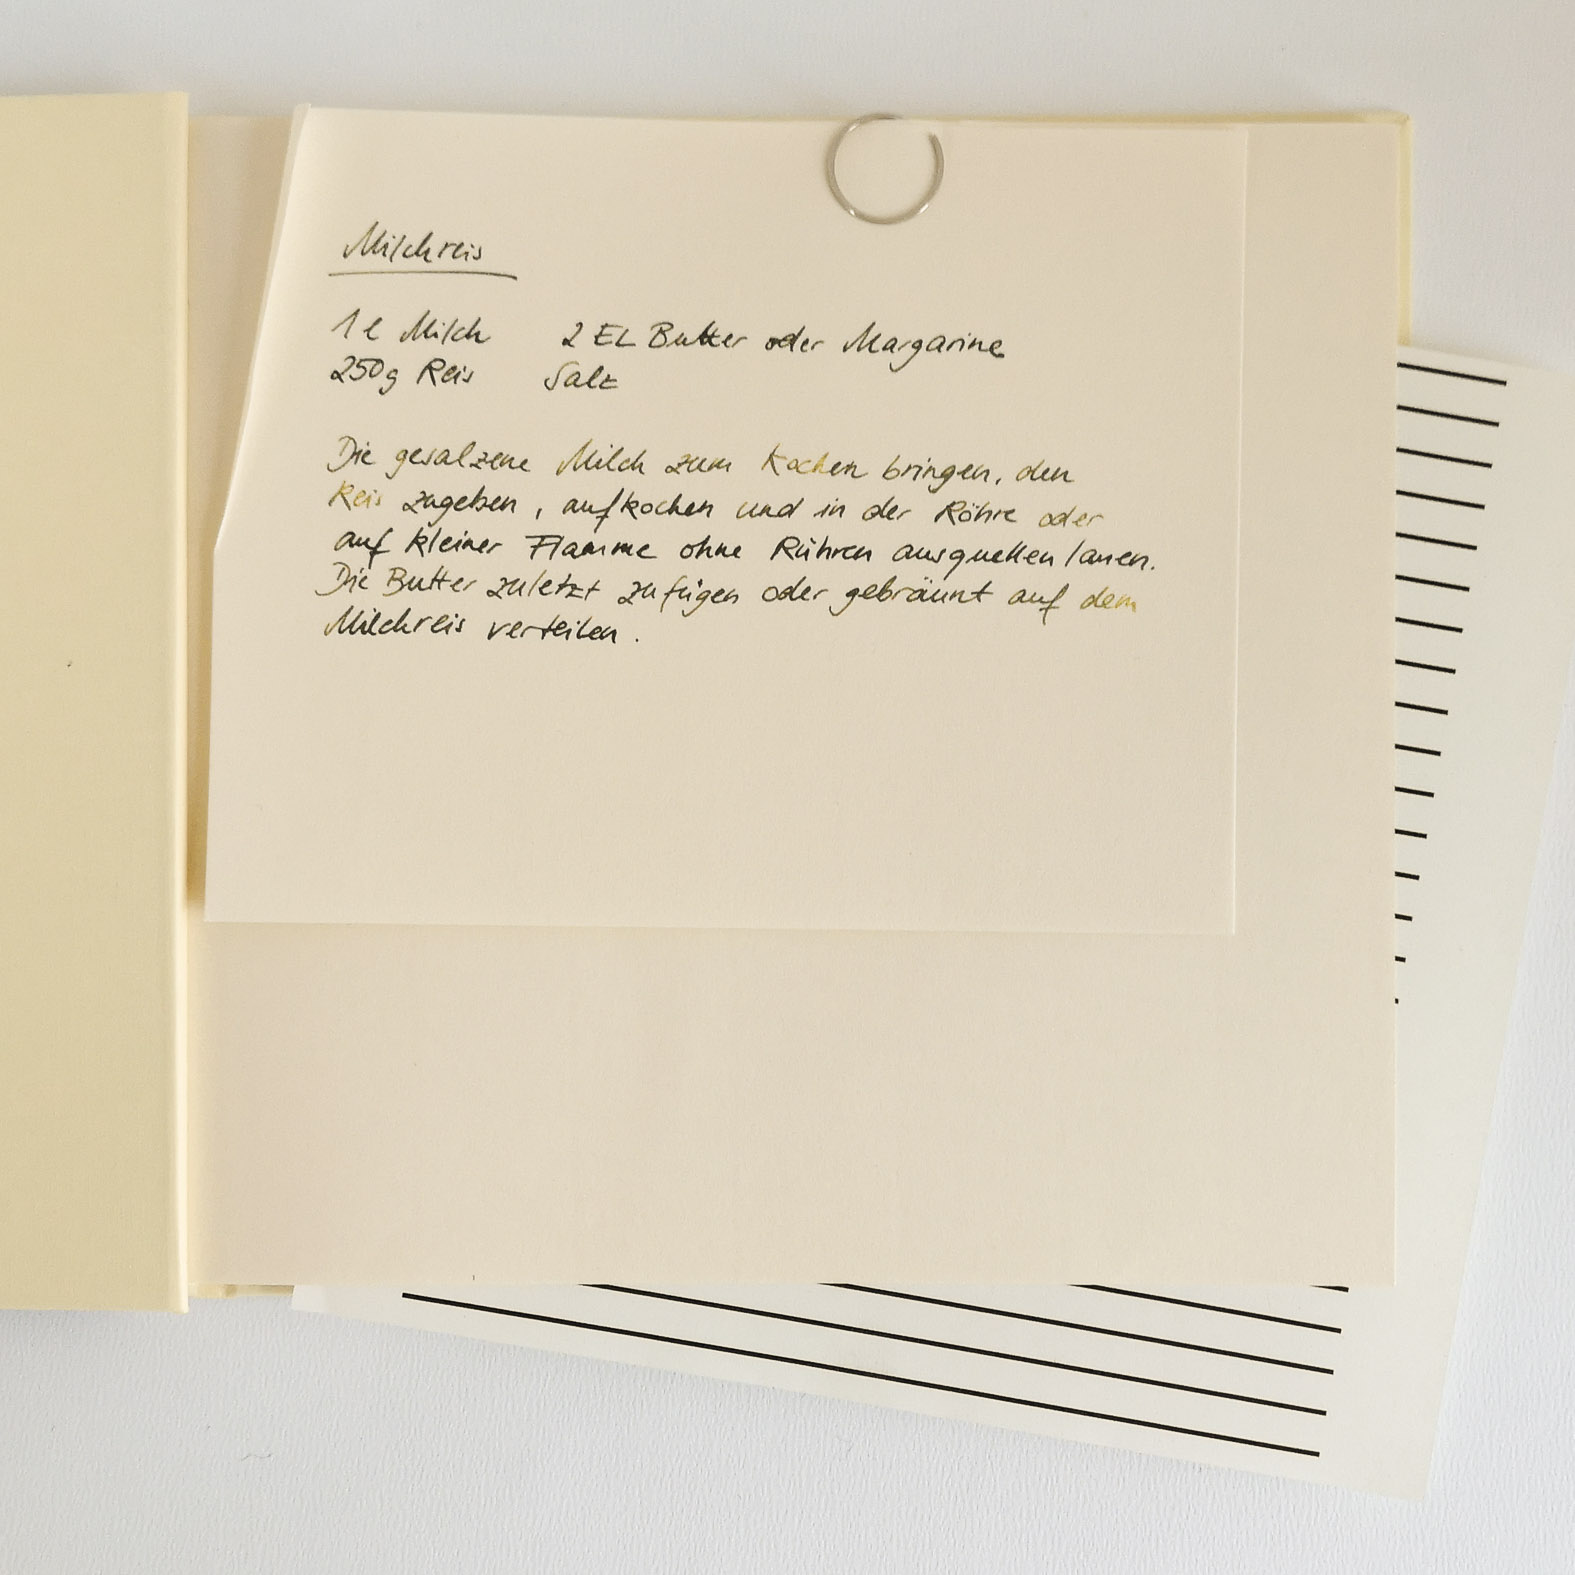 Milchreis
1 l Milch 2 EL Butter oder Margarine
250g Reis Salz
Die gesalzene Milch zum Kochen bringen, den
Reis zugeben, aufkochen und in der Röhre oder
auf kleiner Flamme ohne Rühren ausquellen lassen.
Die Butter zuletzt zufügen oder gebräunt auf dem
Milchreis verteilen.